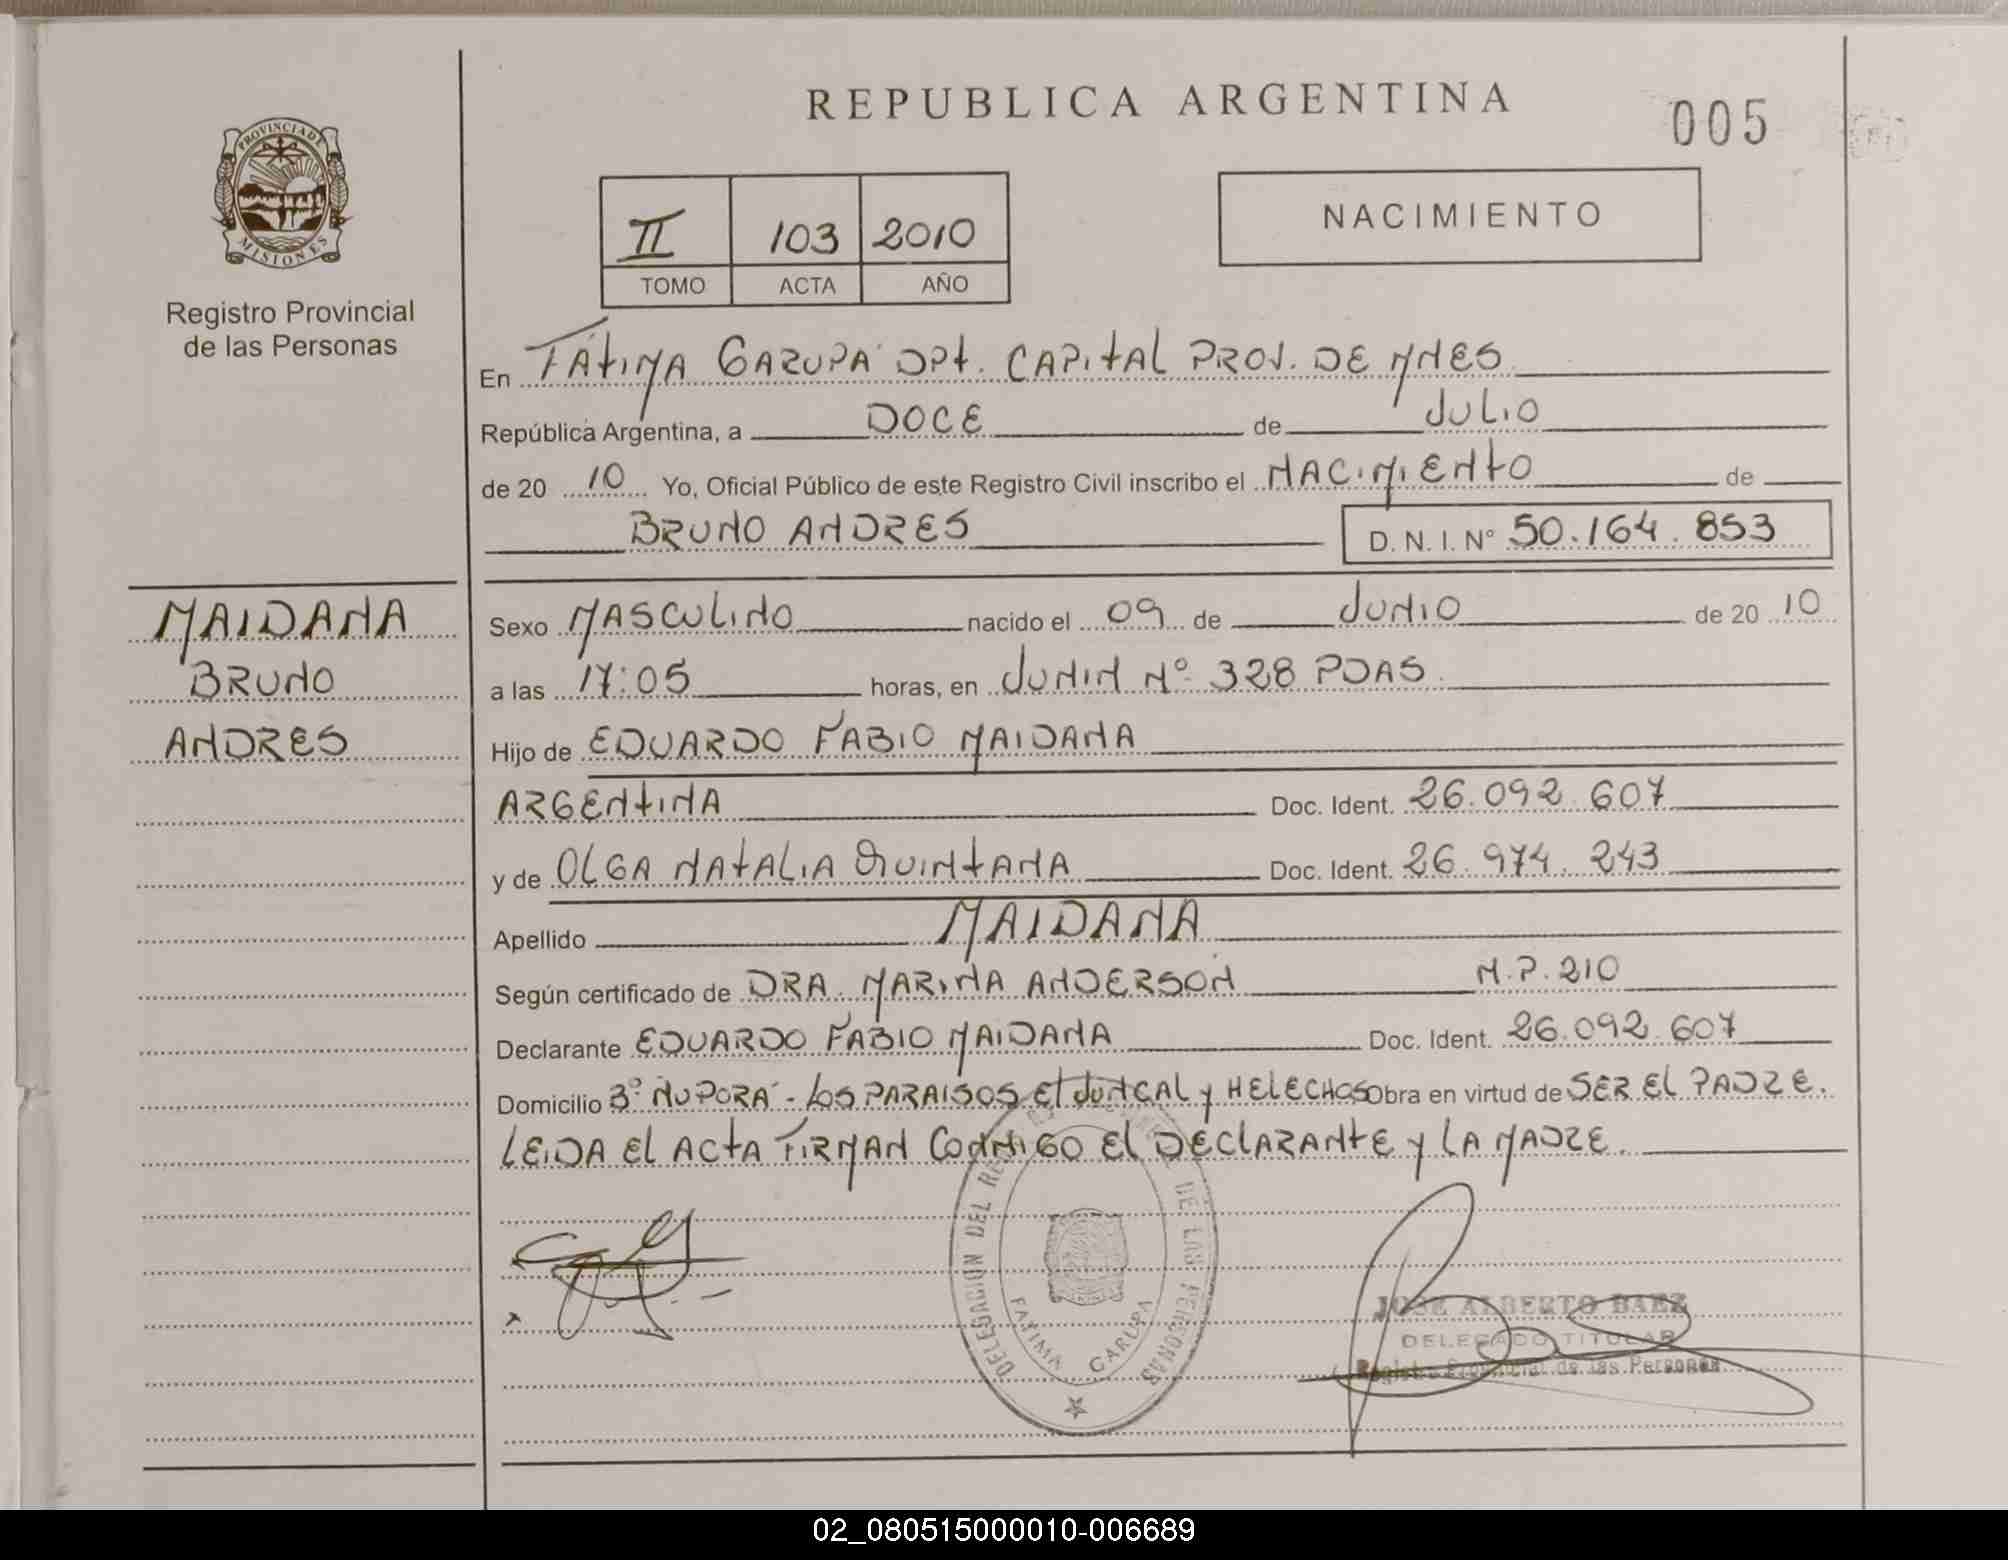 REPUBLICA ARGENTINA
005
PROVINCIA DE
MISIONES
Registro Provincial
de las Personas
II 103 2010
TOMO ACTA AÑO
NACIMIENTO
En FÁTIMA GARUPÁ DPt. CAPITAL PROV. DE MNES
República Argentina, a DOCE de JULIO
de 20 10 Yo, Oficial Público de este Registro Civil inscribo el NACIMIENTO de
BRUNO ANDRES D. N. I. N° 50.164.853
MAIDANA
BRUNO
ANDRES
Sexo MASCULINO nacido el 09 de JUNIO de 20 10
a las 17:05 horas, en JUNIN Nº 328 PDAS.
Hijo de EDUARDO FABIO MAIDANA
ARGENTINA Doc. Ident. 26.092.607
y de OLGA NATALIA QUINTANA Doc. Ident. 26.974.243
Apellido MAIDANA
Según certificado de DRA. MARINA ANDERSON M.P.210
Declarante EDUARDO FABIO MAIDANA Doc. Ident. 26.092.607
Domicilio Bº ÑUPORÁ - LOS PARAISOS El JUNCAL y HELECHOS Obra en virtud de SER EL PADRE.
LEIDA El ACTA FIRMAN CONMIGO El DEClARANTE y LA MADRE.
DELEGACIÓN DEL DE LAS PERSONAS
FATIMA GARUPA
JOSE ALBERTO BAEZ
DELEGADO TITULAR
Registro Provincial de las Personas
02_080515000010-006689